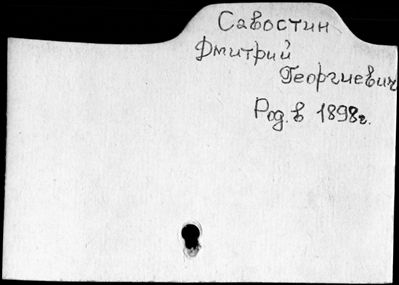 Савостин
Дмитрий
Георгиевич
Род. в 1898г.